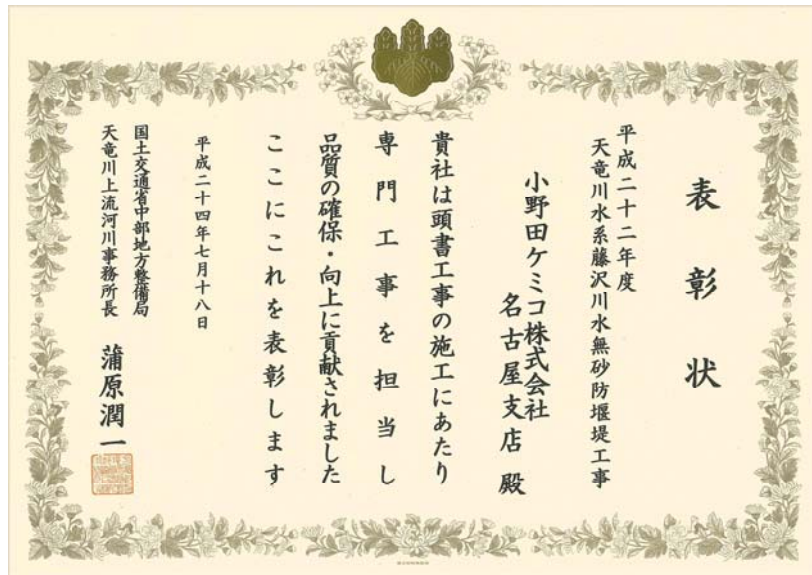 表彰状
平成二十二年度
天竜川水系藤沢川水無砂防堰堤工事
小野田ケミコ株式会社
名古屋支店 殿
貴社は頭書工事の施工にあたり
専門工事を担当し
品質の確保・向上に貢献されました
ここにこれを表彰します
平成二十四年七月十八日
国土交通省中部地方整備局
天竜川上流河川事務所長 蒲原潤一